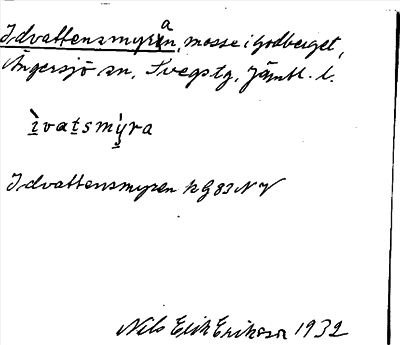 Idvattensmyran, mosse i Godberget,
Ängersjö sn, Svegs tg, Jämtl. l.
ìvatsmỳra
Idvattensmyren kG 83 NV
Nils Erik Eriksson 1932